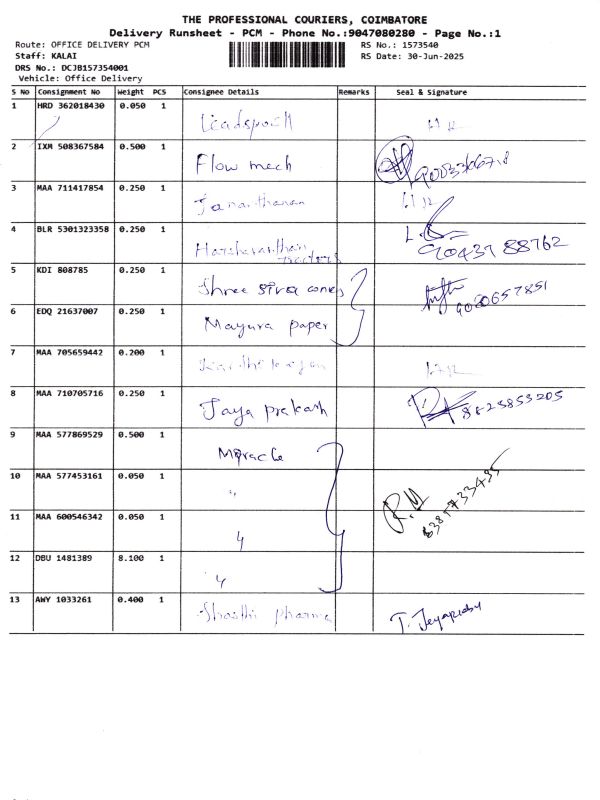 THE PROFESSIONAL COURIERS, COIMBATORE
Delivery Runsheet - PCM - Phone No.:9047080280 - Page No.:1
Route: OFFICE DELIVERY PCM RS No.: 1573540
Staff: KALAI RS Date: 30-Jun-2025
DRS No.: DCJB157354001
Vehicle: Office Delivery
S No Consignment No Weight PCS Consignee Details Remarks Seal & Signature
1 HRD 362018430 0.050 1
2 IXM 508367584 0.500 1 Flow mech
3 MAA 711417854 0.250 1 Janarthanan
4 BLR 5301323358 0.250 1 90437 88762
5 KDI 808785 0.250 1 Shree siva cones
6 EDQ 21637007 0.250 1 Mayura paper
7 MAA 705659442 0.200 1
8 MAA 710705716 0.250 1 Jaya prakash
9 MAA 577869529 0.500 1 Miracle
10 MAA 577453161 0.050 1 "
11 MAA 600546342 0.050 1 "
12 DBU 1481389 8.100 1 "
13 AWY 1033261 0.400 1 pharma